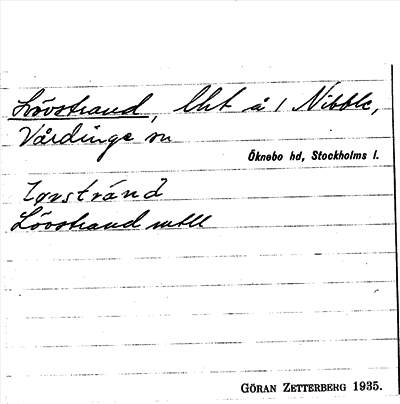 Lövstrand, lht å 1 Nibble,
Vårdinge sn
Öknebo hd, Stockholms l.
Lövstrand mtll
GÖRAN ZETTERBERG 1935.